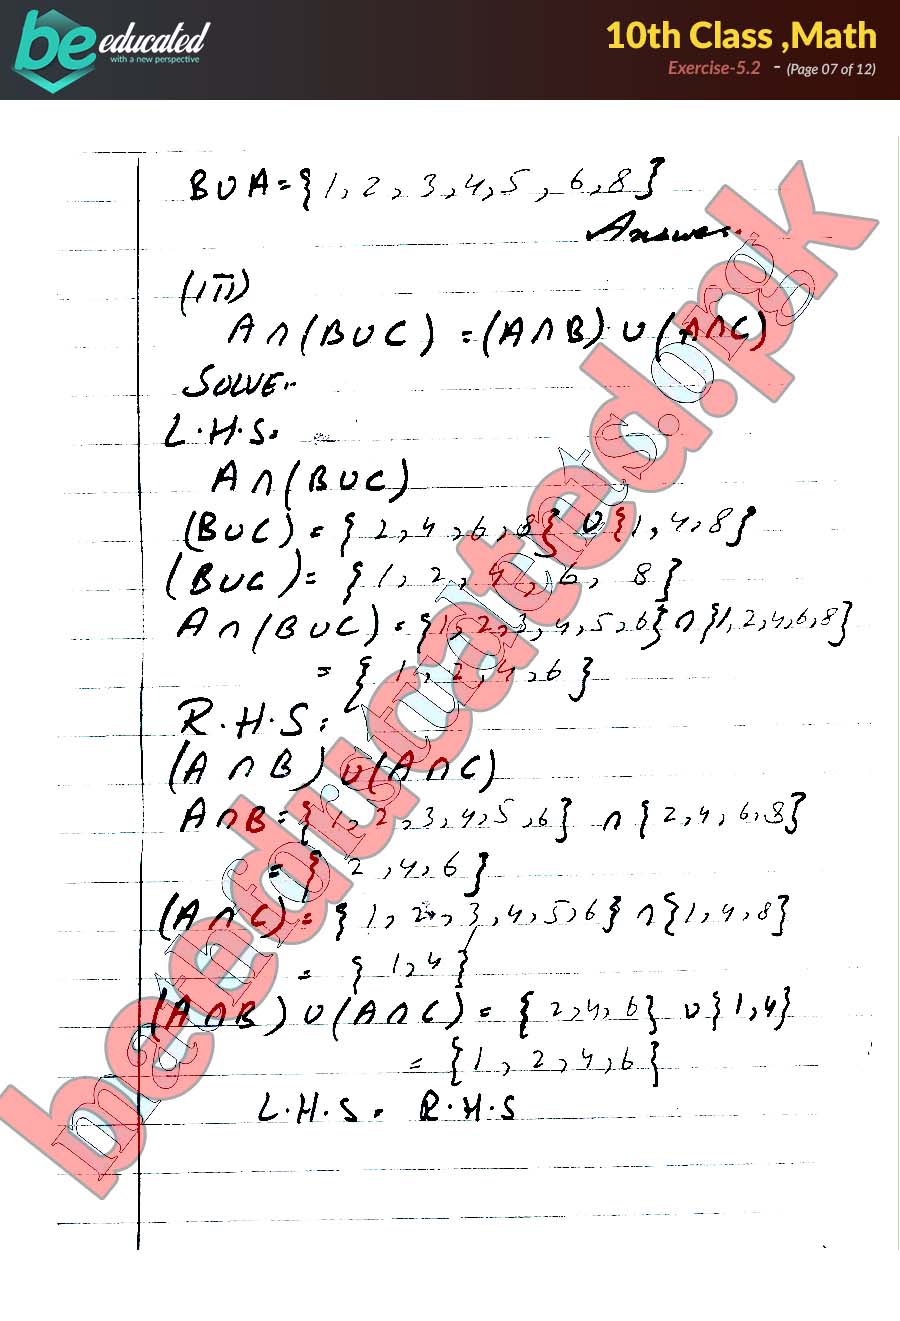 be educated
with a new perspective
10th Class ,Math
Exercise-5.2 - (Page 07 of 12)
B∪A={1,2,3,4,5,6,8}
Answer.
(iii)
A∩(B∪C) =(A∩B)∪(A∩C)
SOLVE:-
L.H.S=
A∩(B∪C)
(B∪C)={2,4,6,8}∪{1,4,8}
(B∪C)={1,2,4,6,8}
A∩(B∪C)={1,2,3,4,5,6}∩{1,2,4,6,8}
={1,2,4,6}
R.H.S=
(A∩B)∪(A∩C)
A∩B={1,2,3,4,5,6}∩{2,4,6,8}
={2,4,6}
(A∩C)={1,2,3,4,5,6}∩{1,4,8}
={1,4}
(A∩B)∪(A∩C)={2,4,6}∪{1,4}
={1,2,4,6}
L.H.S=R.H.S
beeducated.pk